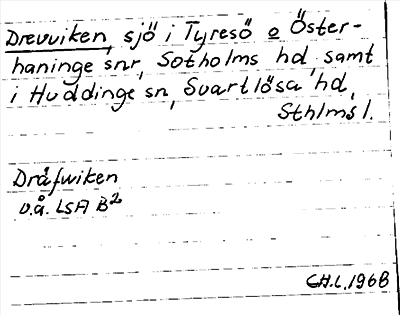 Drevviken, sjö i Tyresö o Öster-
haninge snr, Sotholms hd, samt
i Huddinge sn, Svartlösa hd,
Sthlms l.
Dråfwiken
u.å. LSA B²
CH.L. 1968